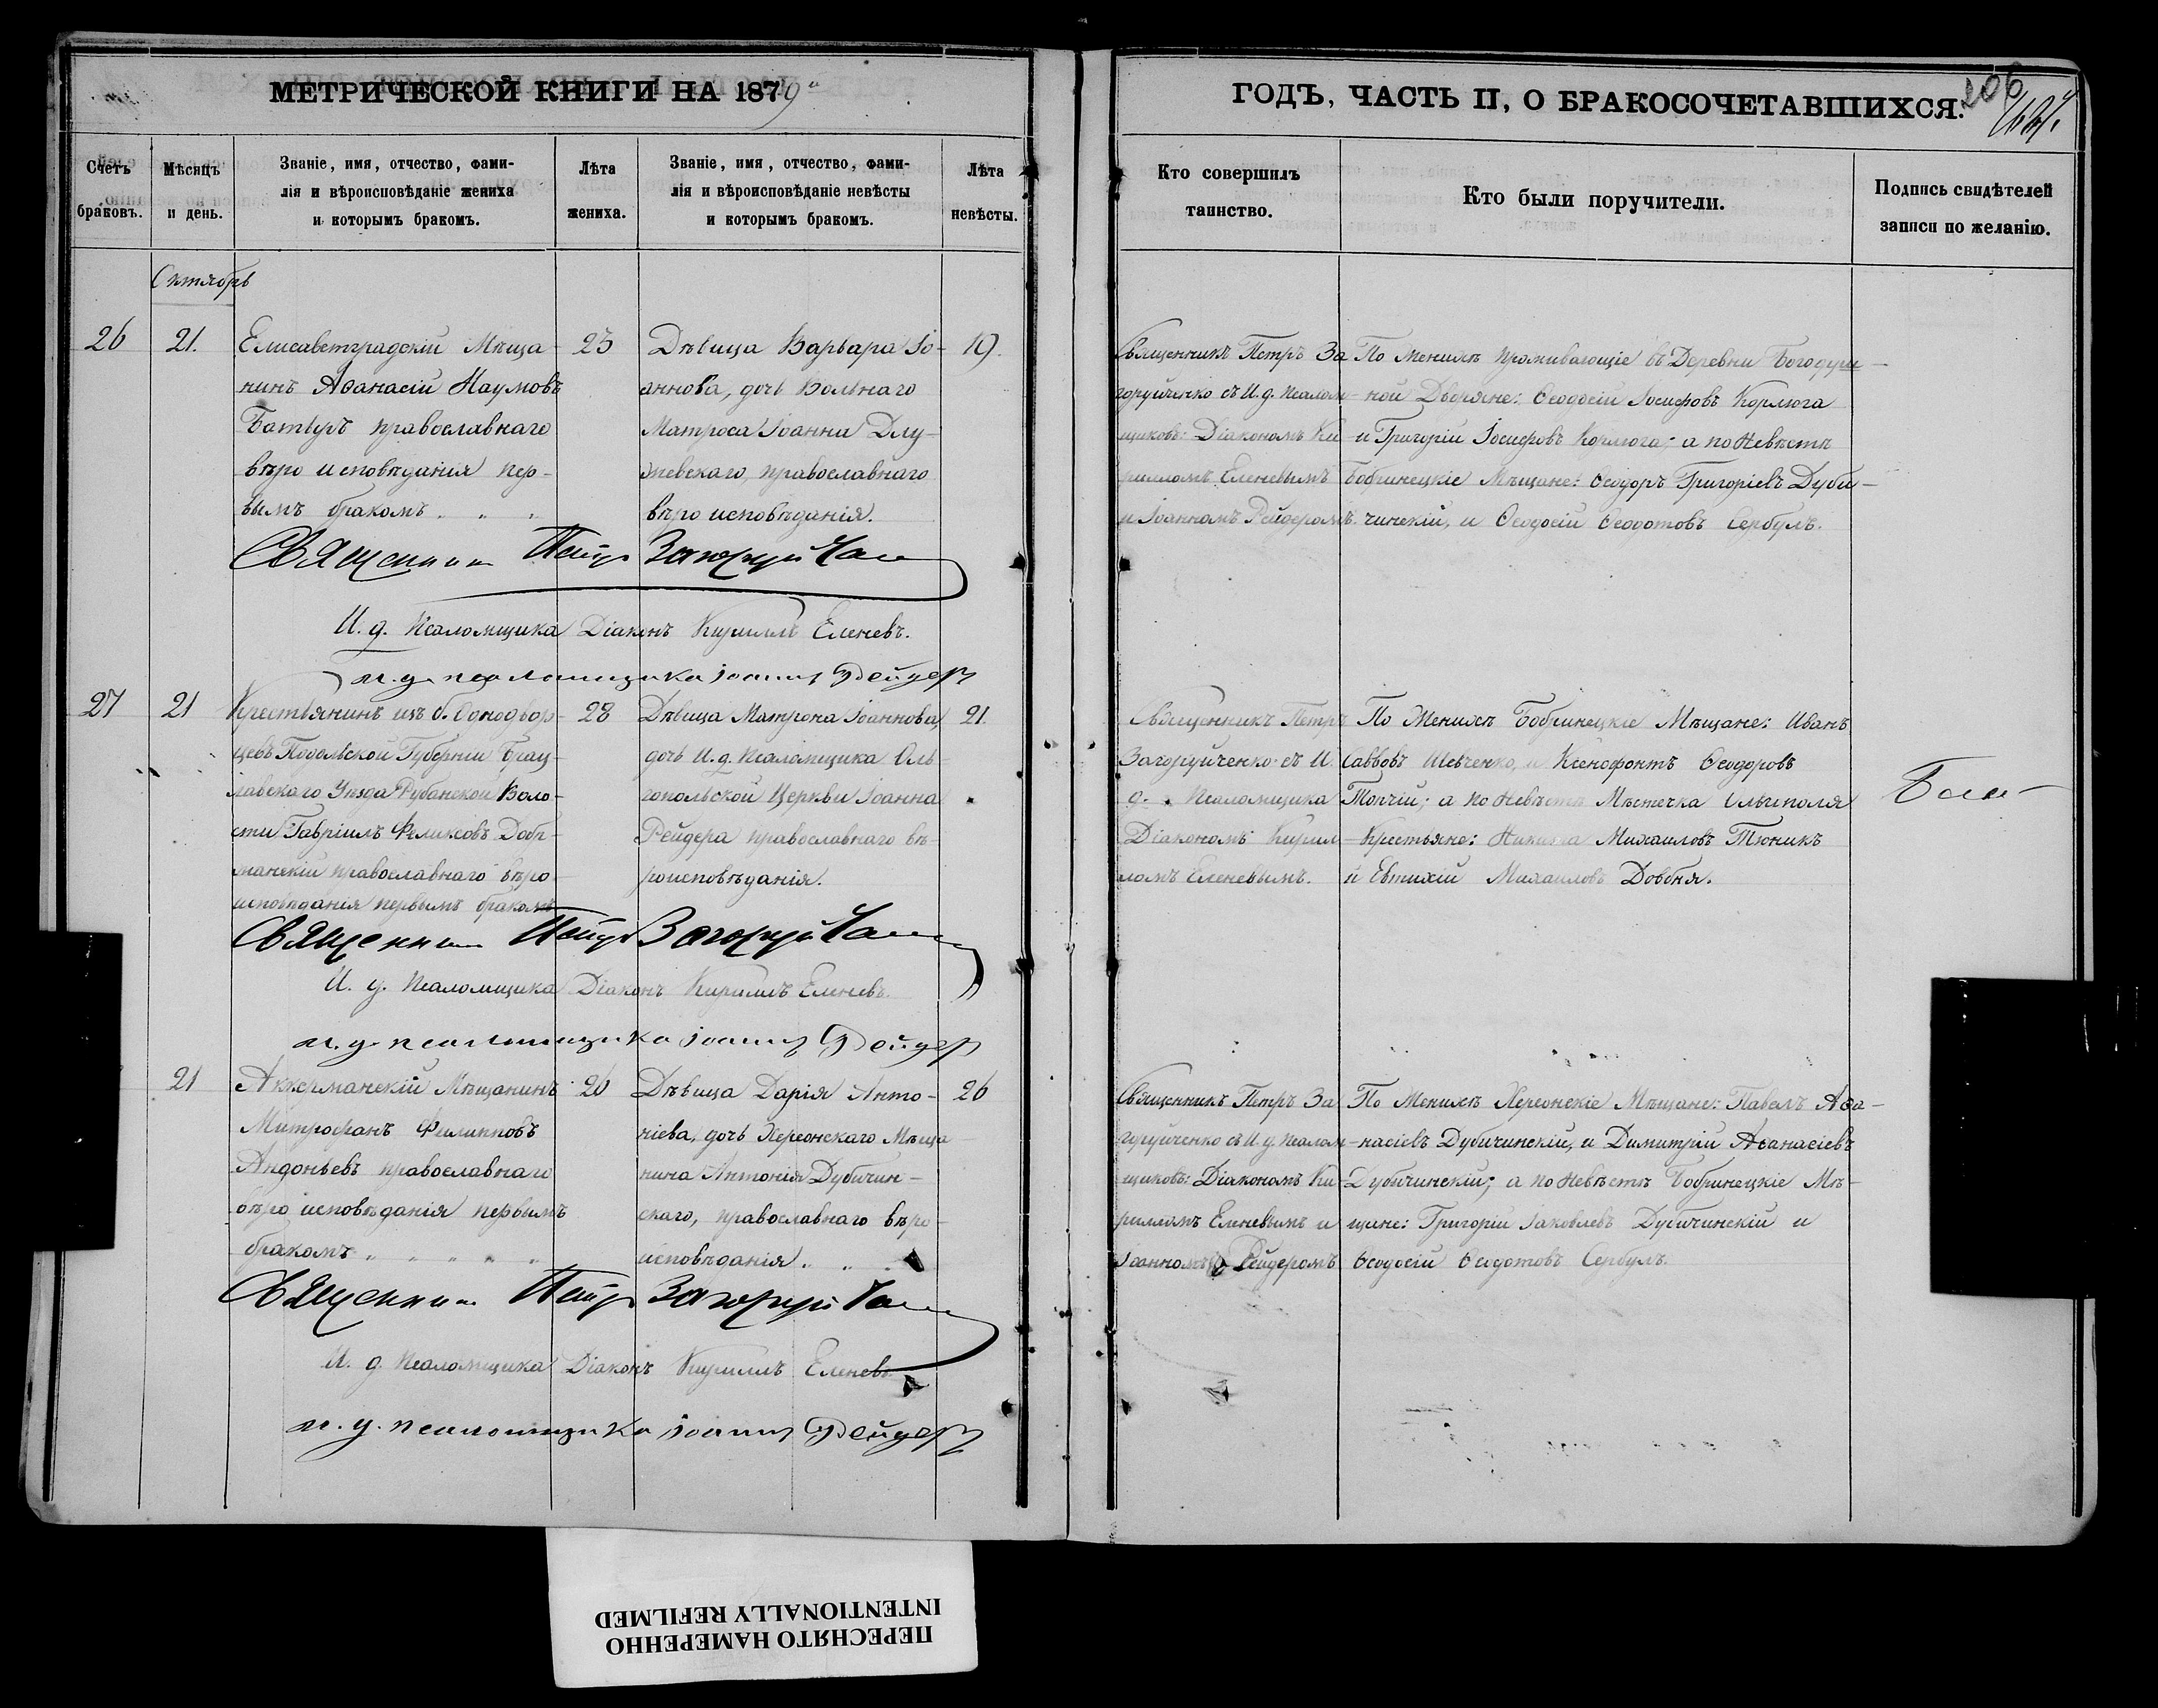 МЕТРИЧЕСКОЙ КНИГИ НА 1879
ГОДЪ, ЧАСТЬ II, О БРАКОСОЧЕТАВШИХСЯ.
206
Счетъ браковъ.
Мѣсяцъ и день.
Званіе, имя, отчество, фами-
лія и вѣроисповѣданіе жениха
и которымъ бракомъ.
Лѣта жениха.
Званіе, имя, отчество, фами-
лія и вѣроисповѣданіе невѣсты
и которымъ бракомъ.
Лѣта невѣсты.
Кто совершилъ
таинство.
Кто были поручители.
Подпись свидѣтелей
записи по желанію.
Октябрь
26
21.
Елисаветградскій Мѣща-
нинъ Аѳанасій Наумовъ
православнаго
вѣро исповѣданія пер-
вымъ бракомъ
23
Дѣвица Варвара Іо-
аннова, дочь Вольнаго
Матроса Іоанна Длу-
жевскаго, православнаго
вѣро исповѣданія.
19.
Священникъ Петръ За
горуйченко съ И. д. псалом-
щиковъ: Діакономъ Ки
рилломъ Еленевымъ
и Іоанномъ Рейдеромъ.
По Женихѣ проживающіе въ Деревни Богодуш-
ной Дворяне: Ѳеодосій Іосифовъ Корлюга
и Григорій Іосифовъ Корлюга; а по Невѣстѣ
Бобринецкіе Мѣщане: Ѳеодоръ Григоріевъ Дуби-
чинскій, и Ѳеодосій Ѳеодотовъ Сербулъ.
Священникъ Петръ Загоруйченко
И. д. Псаломщика Діаконъ Кириллъ Еленевъ.
и. д. псаломщика Іоаннъ Рейдеръ
27
21
Крестьянинъ изъ б. Однодвор-
цевъ Подольской Губерніи Брац-
лавскаго Уѣзда Рубанской Воло-
сти Гавріилъ Феликсовъ Добр-
жанскій православнаго вѣро-
исповѣданія первымъ бракомъ
28
Дѣвица Матрона Іоаннова,
дочь И. д. Псаломщика Оль-
гопольской Церкви Іоанна
Рейдера православнаго вѣ-
роисповѣданія.
21.
Священникъ Петръ
Загоруйченко съ И.
д. Псаломщика
Діакономъ Кирил-
ломъ Еленевымъ.
По Женихѣ Бобринецкіе Мѣщане: Иванъ
Саввовъ Шевченко, и Ксенофонтъ Ѳеодоровъ
Топчій; а по Невѣстѣ Мѣстечка Ольгополя
Крестьяне: Никита Михаиловъ Тюникъ
и Евтихій Михаиловъ Довбня.
Священникъ Петръ Загоруйченко
И. д. Псаломщика Діаконъ Кириллъ Еленевъ.
и. д. псаломщика Іоаннъ Рейдеръ
21
Аккерманскій Мѣщанинъ
Митрофанъ Филипповъ
Андоньевъ православнаго
вѣро исповѣданія первымъ
бракомъ
26
Дѣвица Дарія Анто-
ніева, дочь Херсонскаго Мѣща-
нина Антонія Дубичин-
скаго, православнаго вѣро-
исповѣданія.
26
Священникъ Петръ За
горуйченко съ И. д. псалом-
щиковъ: Діакономъ Ки-
рилломъ Еленевымъ и
Іоанномъ Рейдеромъ
По Женихѣ Херсонскіе Мѣщане: Павелъ Аѳа-
насіевъ Дубичинскій, и Димитрій Аѳанасіевъ
Дубичинскій; а по Невѣстѣ Бобринецкіе Мѣ-
щане: Григорій Іаковлевъ Дубичинскій и
Ѳеодосій Ѳеодотовъ Сербулъ.
Священникъ Петръ Загоруйченко
И. д. Псаломщика Діаконъ Кириллъ Еленевъ.
и. д. псаломщика Іоаннъ Рейдеръ
ПЕРЕСНЯТО НАМЕРЕННО
INTENTIONALLY REFILMED